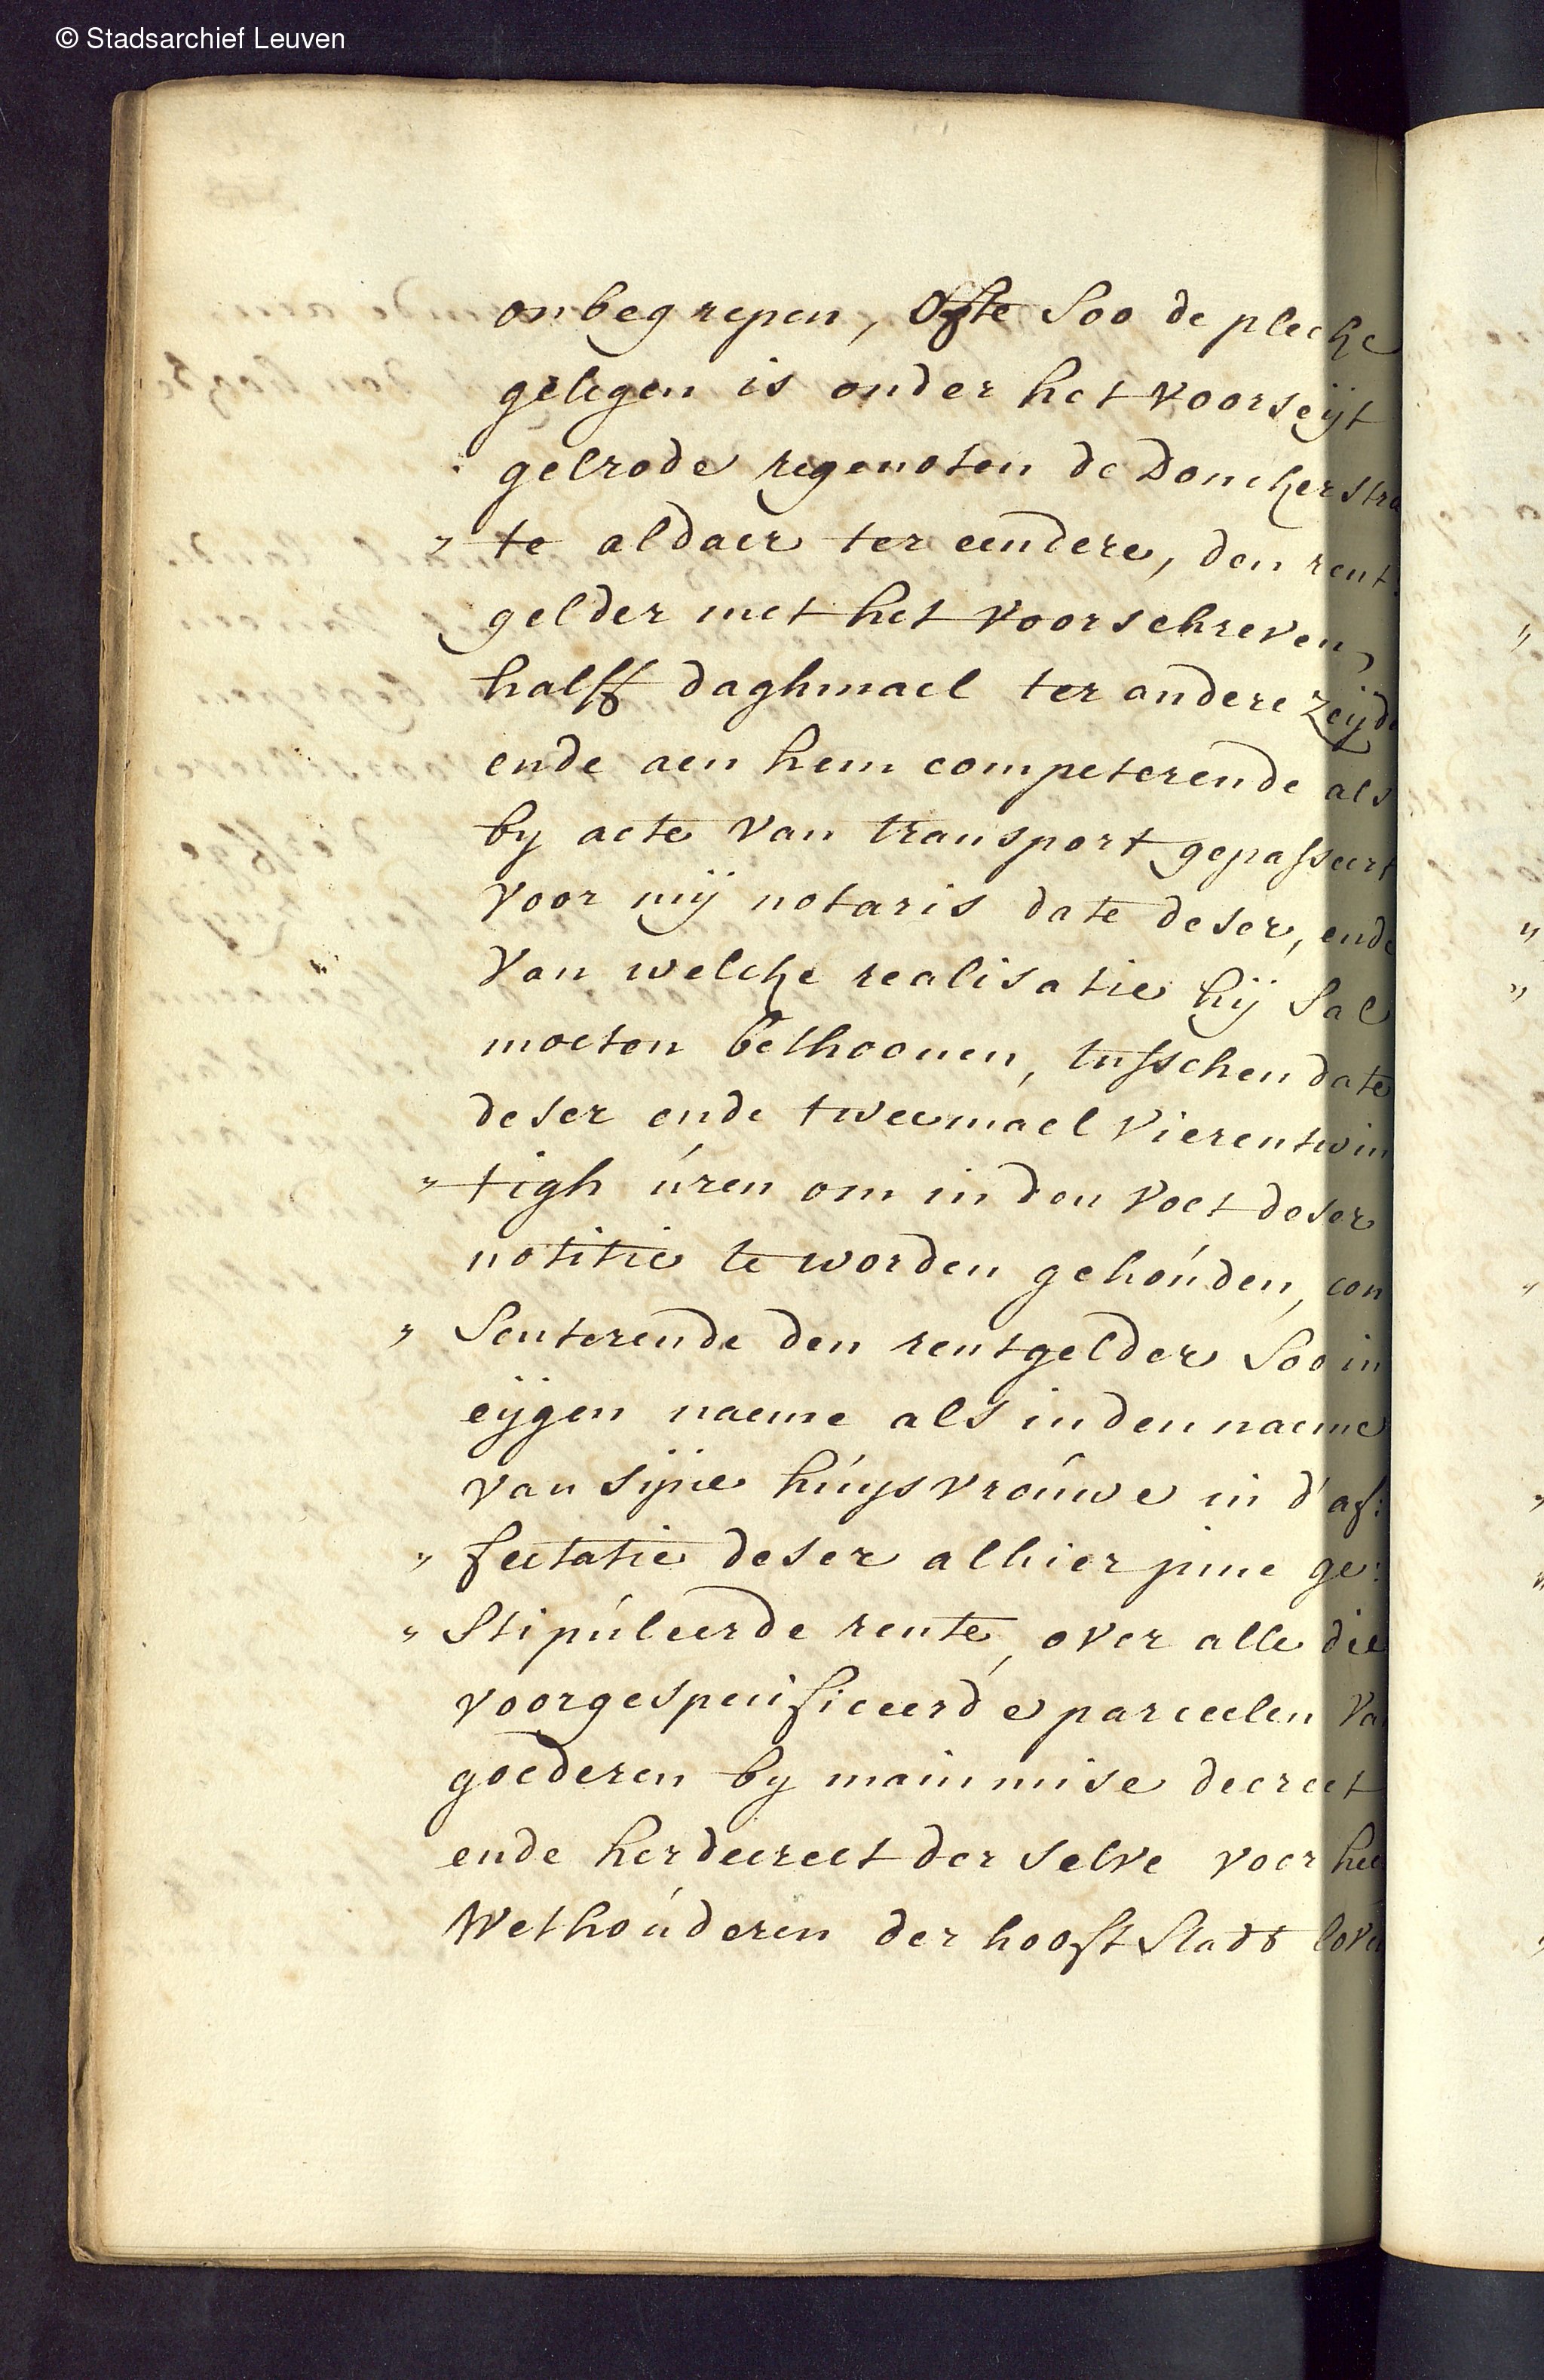 © Stadsarchief Leuven
onbegrepen, Ofte Soo de plecke
gelegen is onder het voorseijt
gelrode regenoten de Donckerstra
" te aldaer ter eendere, den rent:
gelder met het voorschreven,
halff daghmael ter andere zeijde
ende aen hem competerende als
by acte van transport gepasseert
voor mij notaris date deser, ende
van welcke realisatie hij Sal
moeten bethoonen, tusschen date
deser ende tweemael vierentwin
" tigh úren om in den voet deser
notitie te worden gehoúden, con
" Senterende den rentgelder Soo in
eijgen naeme als in den naeme
van sijne húijsvroúwe in d'af:
" fectatie deser alhier ge:
" Stipúleerde rente, over alle die
voorgespecificeerde parceelen va
goederen by mainmise decreet
ende herdecreet der selve voor hee
Wethoúderen der hooft Stadt love